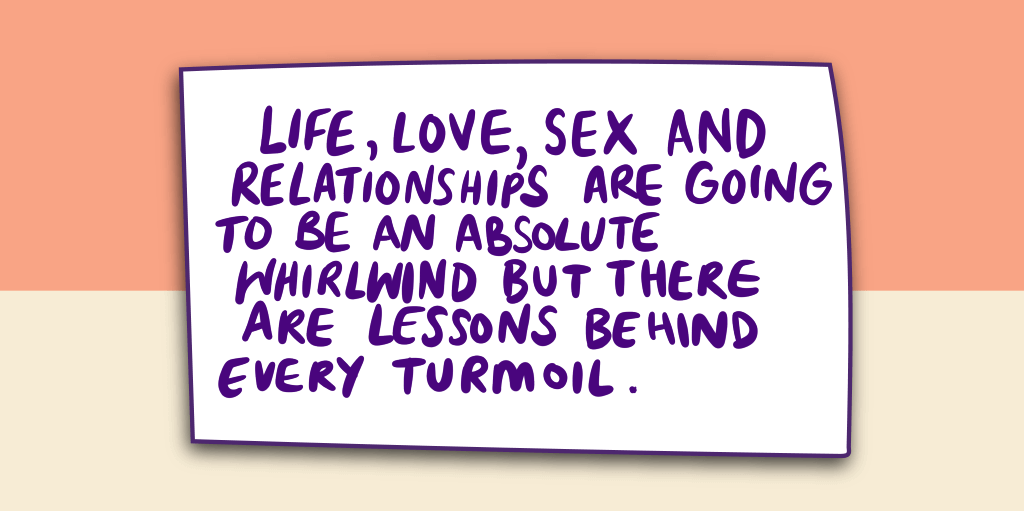 LIFE, LOVE, SEX AND
RELATIONSHIPS ARE GOING
TO BE AN ABSOLUTE
WHIRLWIND BUT THERE
ARE LESSONS BEHIND
EVERY TURMOIL.